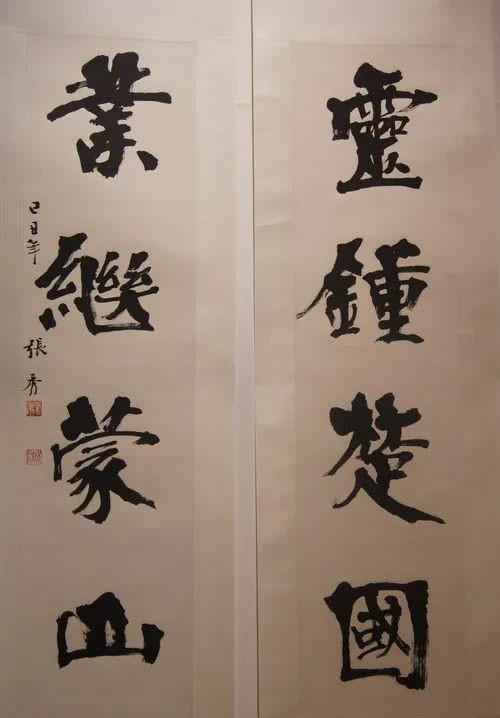 靈鍾楚國
業繼蒙山
己丑年 張秀